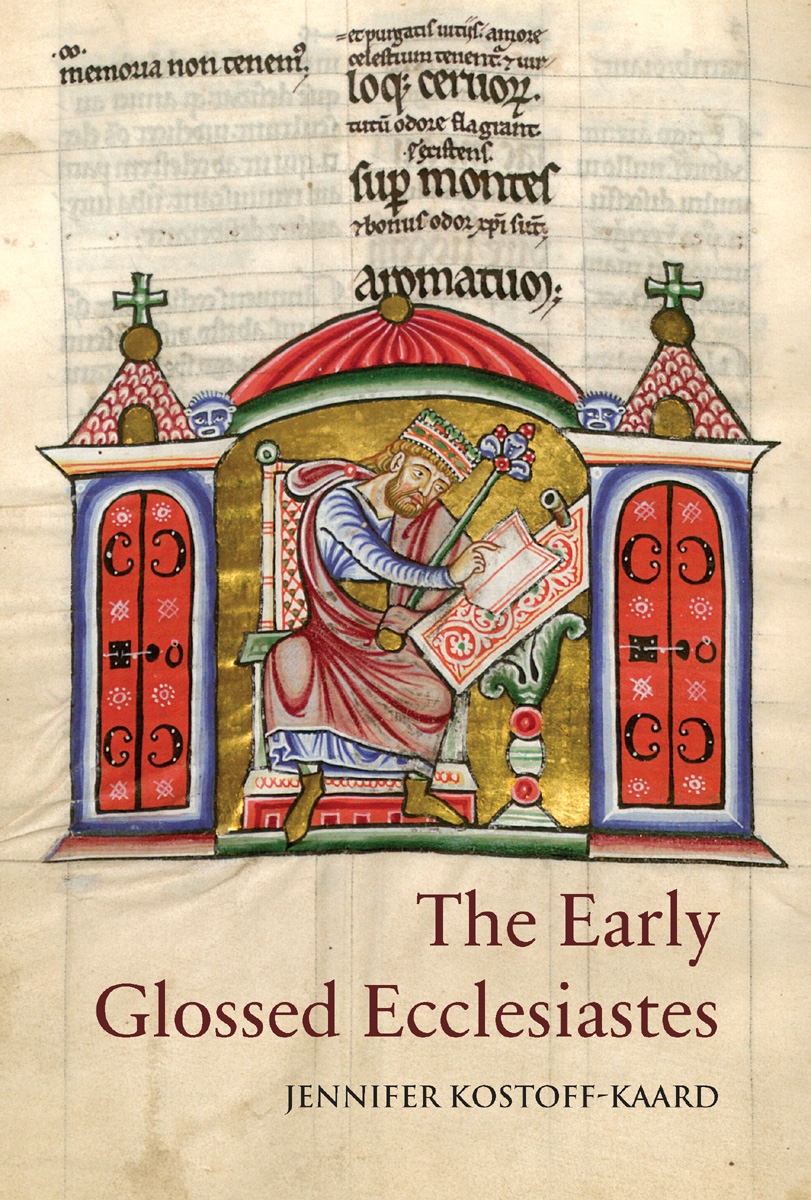 memoria non tenem᷒;
et purgatis uitiis: amore
celestium tenent᷑. ⁊ uir
loqꝫ ceruoꝝ.
tutū odore flagrant
suꝑ montes
⁊ bonus odor xp̄i sūt;
aromatum;
The Early
Glossed Ecclesiastes
JENNIFER KOSTOFF-KAARD